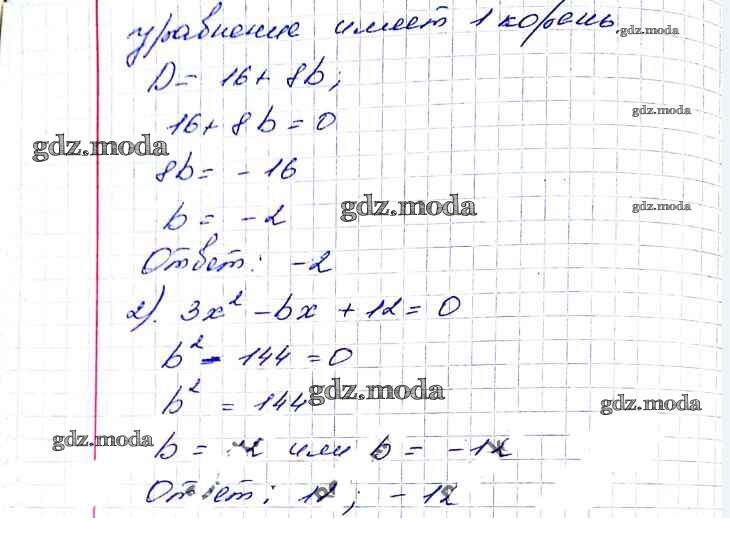 уравнение имеет 1 корень.
gdz.moda
D = 16 + 8b;
gdz.moda
16 + 8b = 0
gdz.moda
8b = - 16
b = - 2
gdz.moda
gdz.moda
Ответ: -2
2). 3x² - bx + 12 = 0
b² - 144 = 0
b² = 144
gdz.moda
gdz.moda
gdz.moda
b = 12 или b = - 12
Ответ: 12; - 12